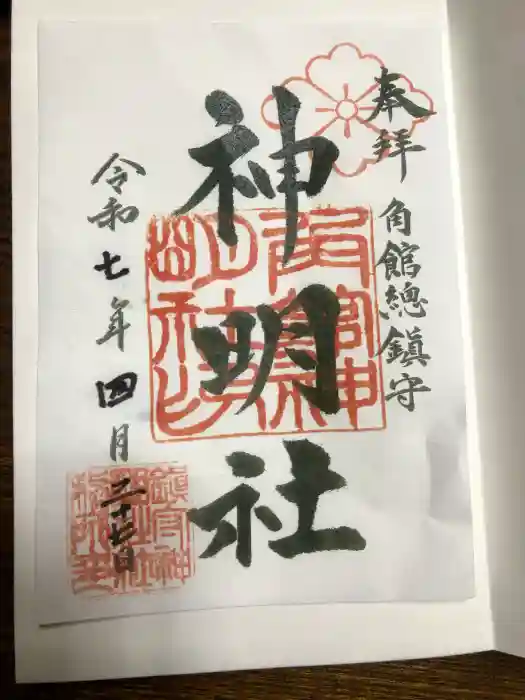 奉拝
角館總鎮守
神明社
令和七年四月二十七日